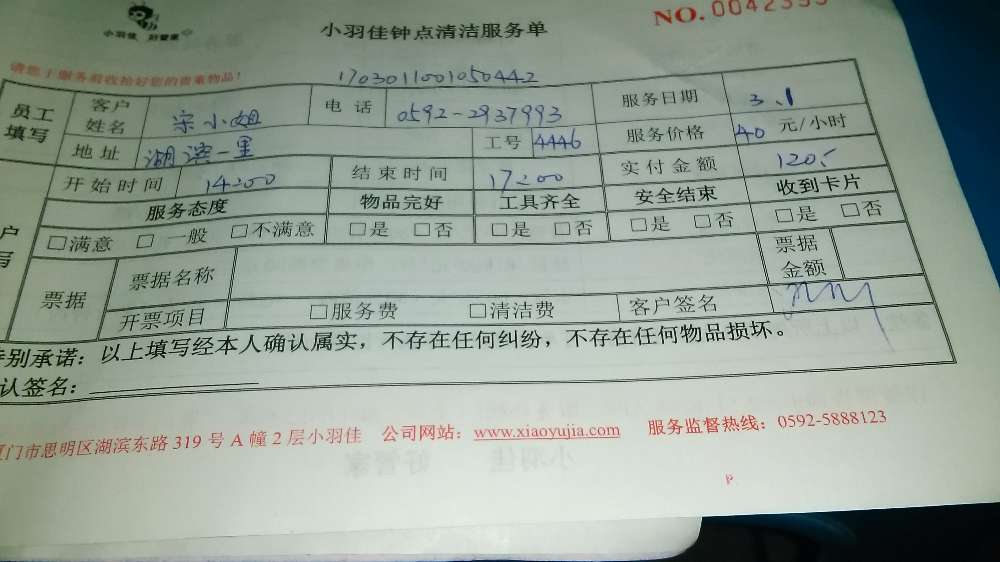 小羽佳 好管家
小羽佳钟点清洁服务单
NO.0042355
请您于服务前收拾好您的贵重物品!
1703011001050442
员工填写 客户姓名 宋小姐 电话 0592-2937993 服务日期 3.1
地址 湖滨一里 工号 4446 服务价格 40 元/小时
开始时间 14:00 结束时间 17:00 实付金额 120.
服务态度 物品完好 工具齐全 安全结束 收到卡片
户
写
□满意 □一般 □不满意 □是 □否 □是 □否 □是 □否 □是 □否
票据 票据名称 票据金额
开票项目 □服务费 □清洁费 客户签名
特别承诺:以上填写经本人确认属实,不存在任何纠纷,不存在任何物品损坏。
认签名:
厦门市思明区湖滨东路 319 号 A 幢 2 层小羽佳 公司网站:www.xiaoyujia.com 服务监督热线:0592-5888123